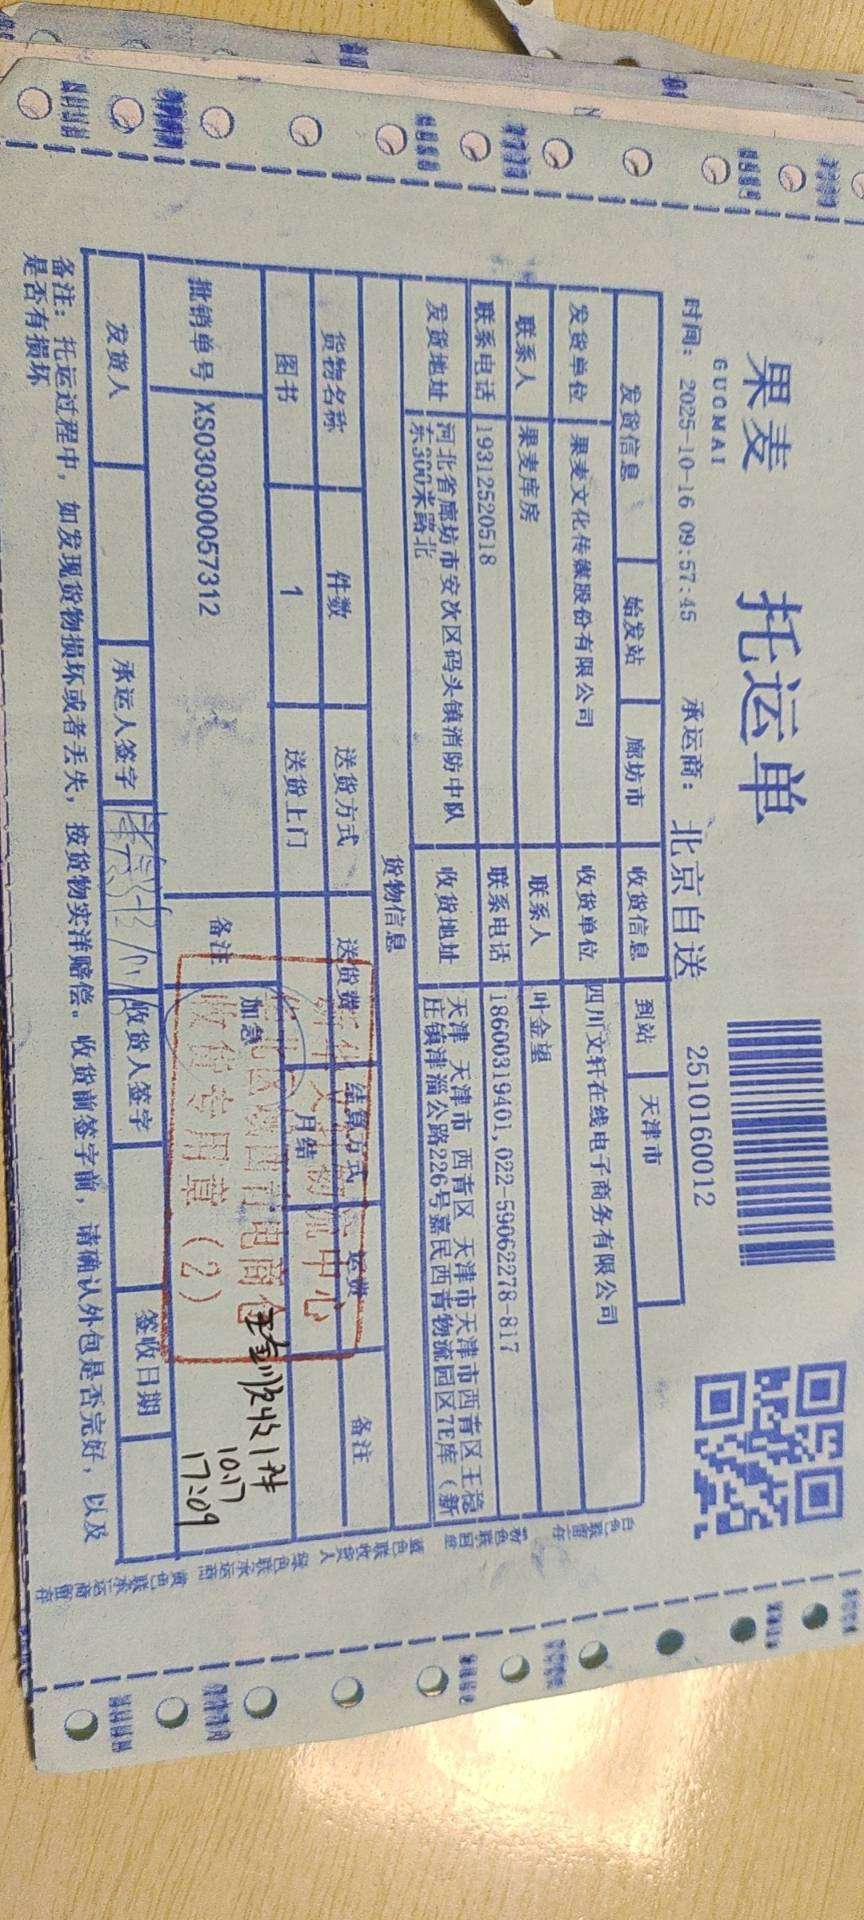 果麦
GUOMAI
托运单
2510160012
时间: 2025-10-16 09:57:45 承运商: 北京自送
发货信息 始发站 廊坊市 收货信息 到站 天津市
发货单位 果麦文化传媒股份有限公司 收货单位 四川文轩在线电子商务有限公司
联系人 果麦库房 联系人 叶金望
联系电话 19312520518 联系电话 18600319401,022-59062278-817
发货地址 河北省廊坊市安次区码头镇消防中队
东300米路北
收货地址 天津 天津市 西青区 天津市天津市西青区王稳
庄镇津淄公路226号嘉民西青物流园区7E库(新
货物信息
货物名称 件数 送货方式 送货费 结算方式 运费 备注
图书 1 送货上门 月结
批销单号 XS030300057312 备注 加急
物流中心
电商仓
收货专用章(2)
收1件
10.17
17:09
发货人 承运人签字 收货人签字 签收日期
备注: 托运过程中, 如发现货物损坏或者丢失, 按货物实洋赔偿。收货前签字前, 请确认外包是否完好, 以及
是否有损坏
白色联留存 粉色联回签 蓝色联收货人 绿色联承运商 黄色联承运商留存